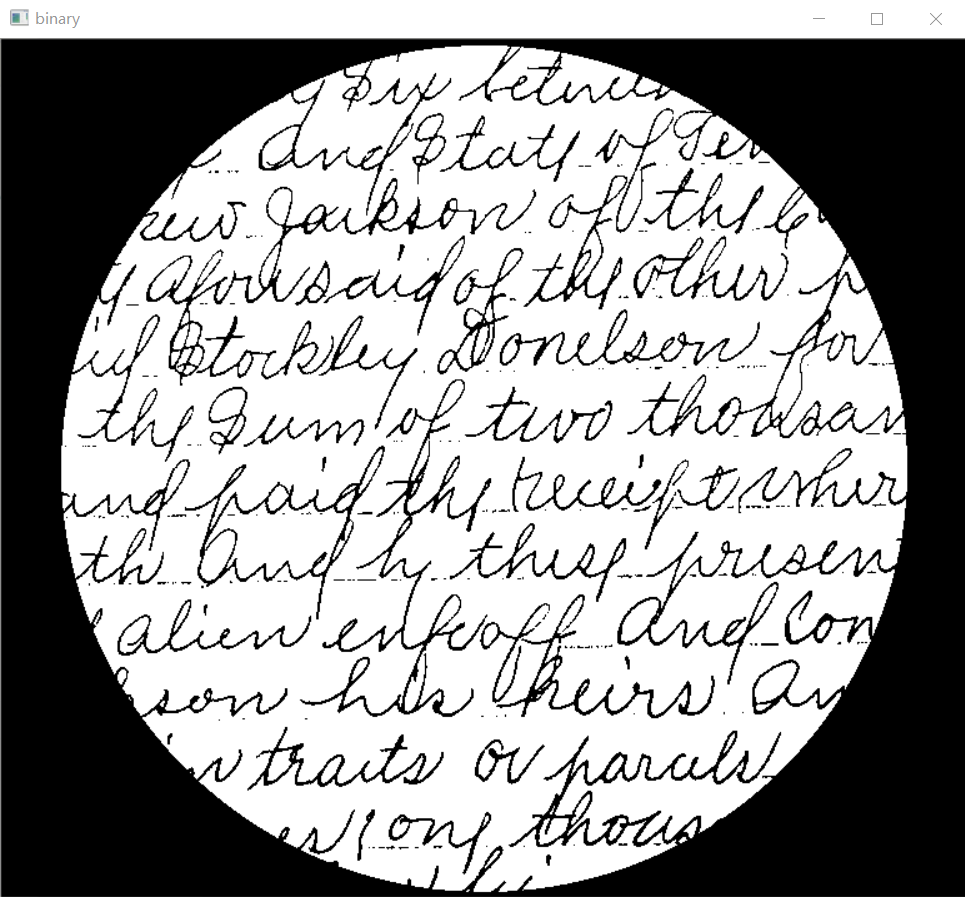 binary
y Six between
And State of Ten
rew Jackson of the Co
ty aforesaid of the other p
id Stockley Donelson for
the Sum of two thousan
and paid the receipt wher
th And by these presen
alien enfeoff And Con
kson his heirs An
in traits or parcels
es one thous